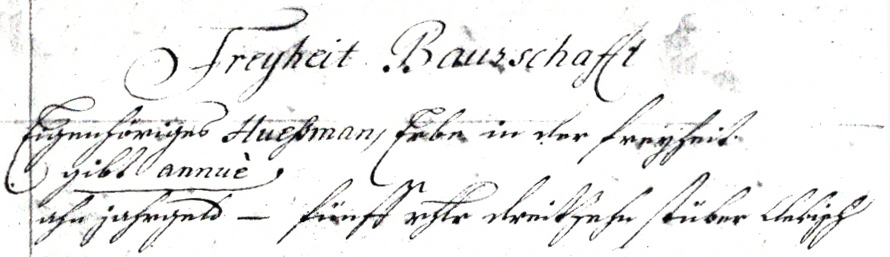 Freyheit Baurschafft
Eigenhöriges Hueßman, Erbe in der freyheit
gibt annuè
ahn jahrgeld — fünff rthlr dreitzehn stüber Clevisch